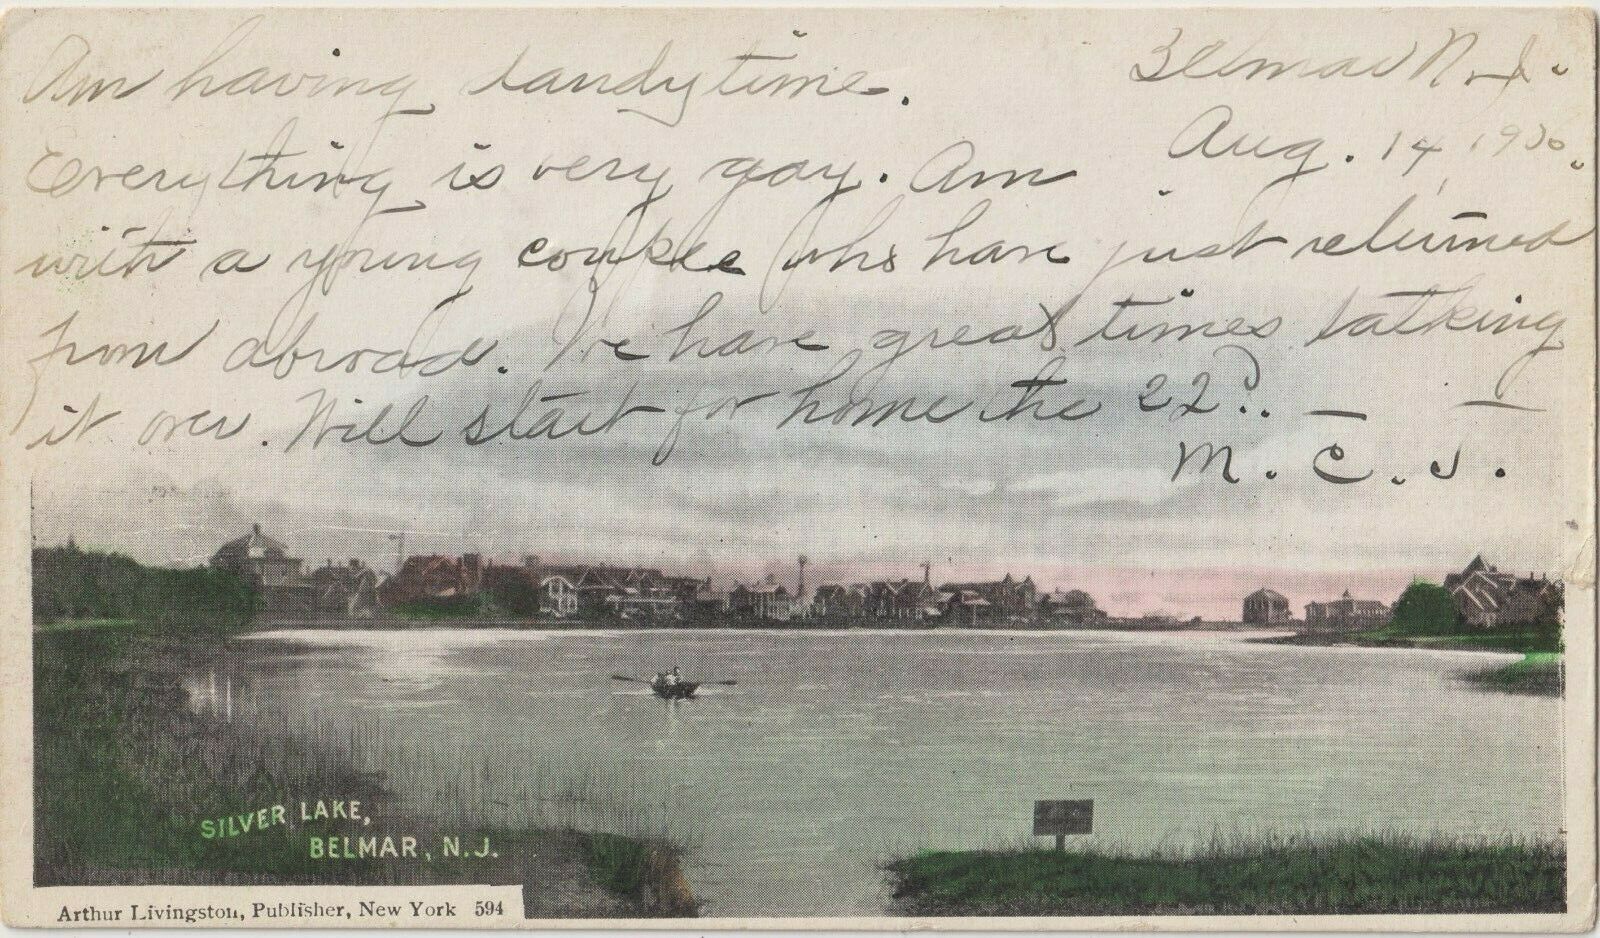 Belmar N. J.
Aug. 14, 1906.
Am having dandy time.
Everything is very gay. Am
with a young couple who have just returned
from abroad. We have great times talking
it over. Will start for home the 22d. — —
M. C. J.
SILVER LAKE,
BELMAR, N.J.
Arthur Livingston, Publisher, New York 594